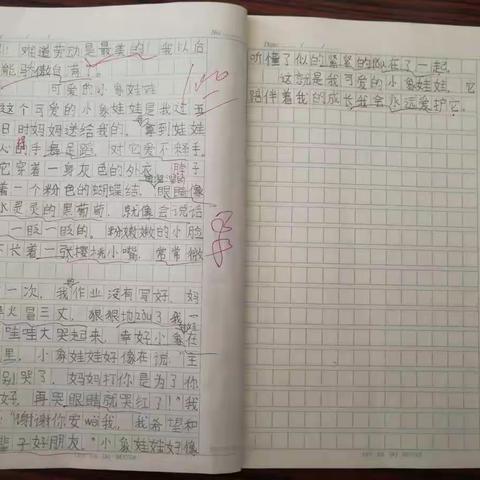 难道劳动是最美的 我以后
能骄傲自满了。
可爱的小象娃娃
100
这个可爱的小象娃娃是我过五
日时妈妈送给我的。拿到娃娃
心的手舞足蹈，对它爱不释手。
它穿着一身灰色的外衣，脖子
着一个粉色的蝴蝶结，眼睛像
水灵灵的黑葡萄，就像会说话
一眨一眨的。粉嫩嫩的小脸
长着一张樱桃小嘴，常常微
一次，我作业没有写好，妈
火冒三丈，狠狠地zòu了我一
哇哇大哭起来，幸好小象在
里，小象娃娃好像在说："主
别哭了，妈妈打你是为了你
好，再哭眼睛就哭红了！"我
："谢谢你安wèi我，我希望和
辈子好朋友。"小象娃娃好像
听懂了似的紧紧的
在了一起。
这就是我可爱的小象娃娃，它
陪伴着我的成长我会永远爱护它。